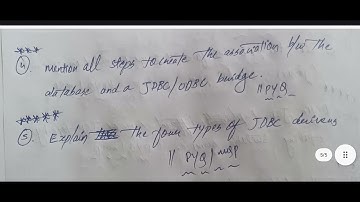 ***
4. mention all steps to create the association b/w the
database and a JDBC/ODBC bridge.
|| PYQ
*****
5. Explain the four types of JDBC drivers
|| PYQ | MSQP
5/5